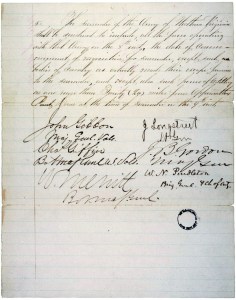 The surrender of the Army of Northern Virginia
shall be construed to include all the forces operating
with that Army on the 8th inst, the date of commence-
ment of negociation for surrender, except such
bodies of Cavalry as actually made their escape previous
to the surrender, and except such
Artillery
as were more than Twenty (20) miles from Appomattox
Court House at the time of surrender on the 9th inst.
John Gibbon
Maj Genl Vols
Chas Griffin
Bvt Maj Genl U S Vols
W. Merritt
Bvt Maj Genl
J Longstreet
Lt Gen
J B Gordon
Maj Gen
W. N. Pendleton
Brig Genl